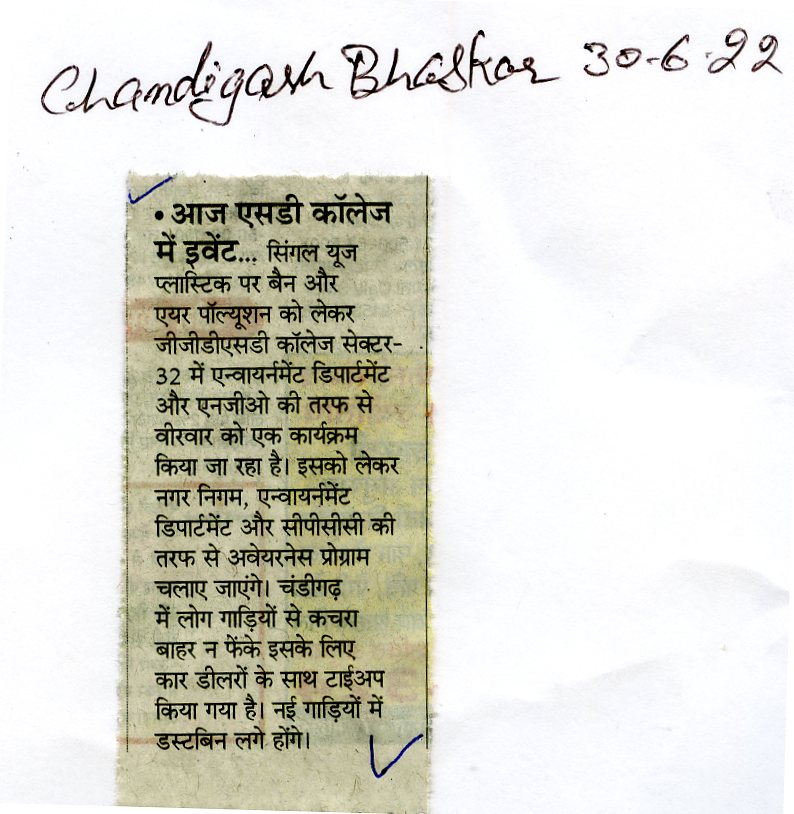 Chandigarh Bhaskar 30-6-22
• आज एसडी कॉलेज
में इवेंट... सिंगल यूज
प्लास्टिक पर बैन और
एयर पॉल्यूशन को लेकर
जीजीडीएसडी कॉलेज सेक्टर-
32 में एन्वायर्नमेंट डिपार्टमेंट
और एनजीओ की तरफ से
वीरवार को एक कार्यक्रम
किया जा रहा है। इसको लेकर
नगर निगम, एन्वायर्नमेंट
डिपार्टमेंट और सीपीसीसी की
तरफ से अवेयरनेस प्रोग्राम
चलाए जाएंगे। चंडीगढ़
में लोग गाड़ियों से कचरा
बाहर न फेंके इसके लिए
कार डीलरों के साथ टाईअप
किया गया है। नई गाड़ियों में
डस्टबिन लगे होंगे।